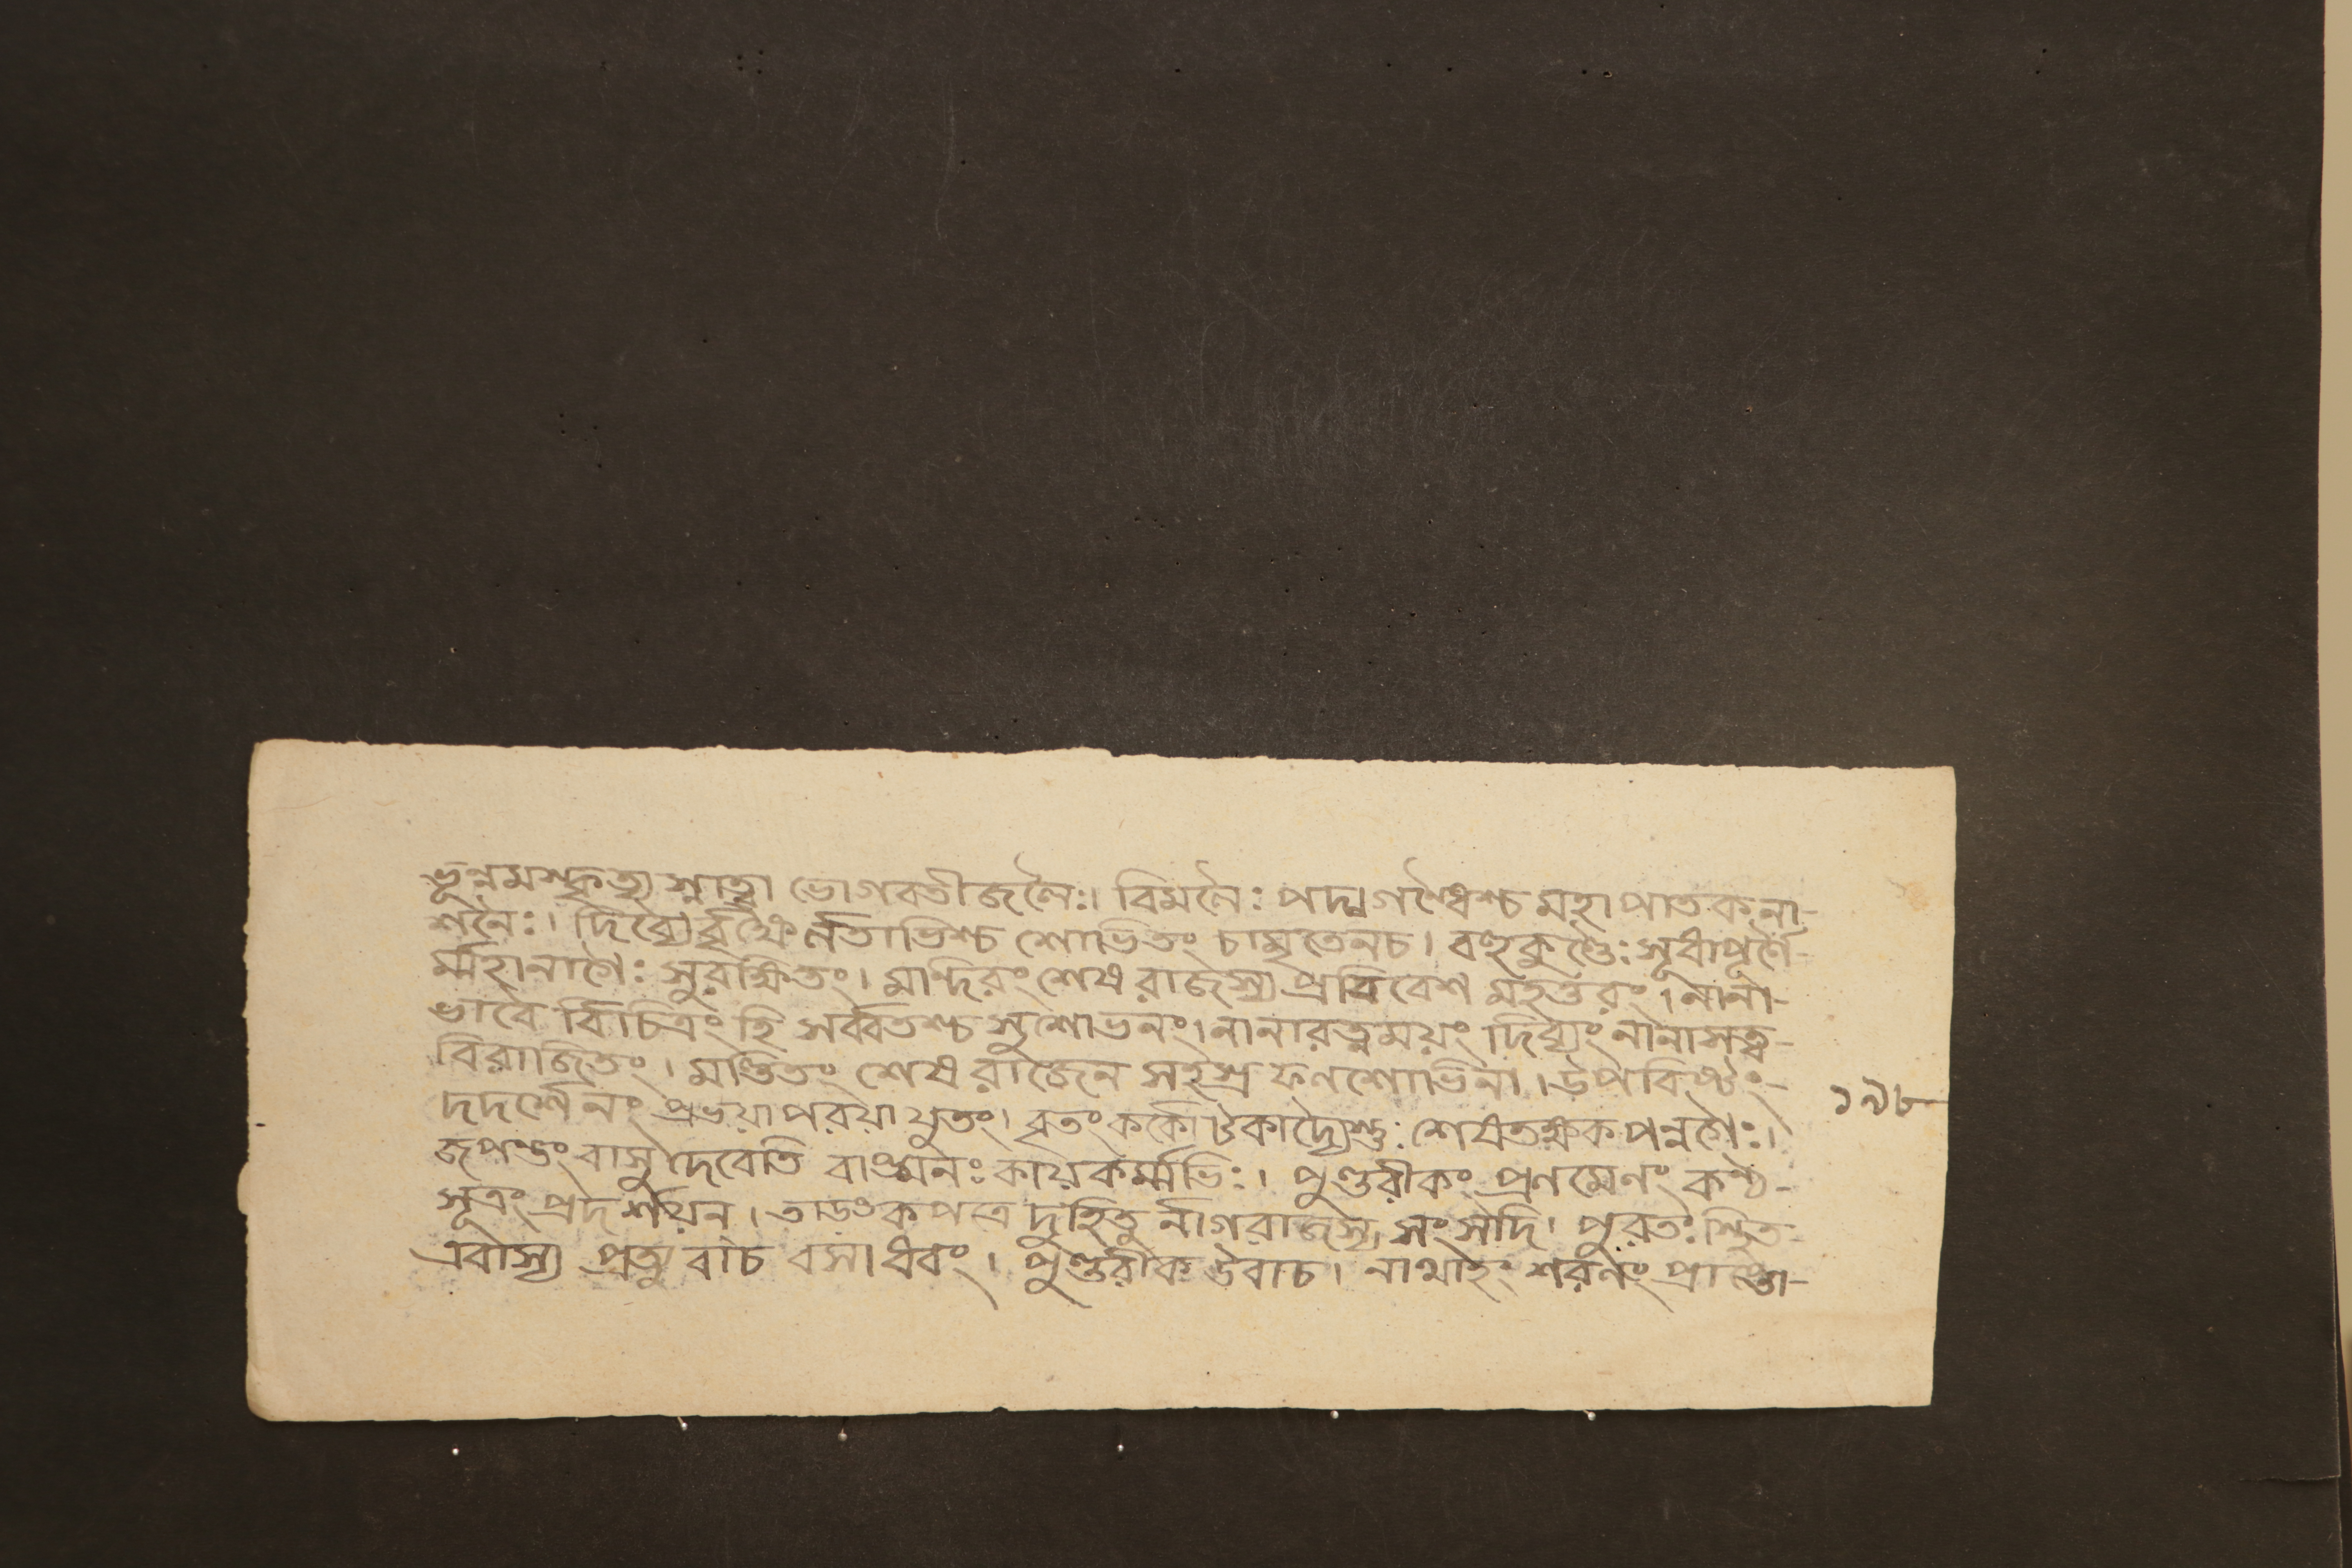 ভূন্নমস্কৃত্য স্নাত্বা ভোগবতীজলৈঃ। বিমলৈঃ পদ্মগন্ধৈশ্চ মহাপাতকনা-
শনৈঃ। দিব্যৈর্বৃক্ষৈর্লতাভিশ্চ শোভিতং চামৃতেনচ। বহুকুণ্ডৈঃ সুধাপূর্ণৈ-
র্ম্মহানাগৈঃ সুরক্ষিতং। মন্দিরং শেষরাজস্য প্রবিবেশ মহত্তরং। নানা-
ভাবৈ র্বিচিত্রং হি সর্ব্বতশ্চ সুশোভনং। নানারত্নময়ং দিব্যং নানাসত্ত্ব-
বিরাজিতং। মণ্ডিতং শেষরাজেন সহস্রফণশোভিনা। উপবিষ্টং-
দদর্শেনং প্রভয়া পরয়া যুতং। বৃতং কর্কোটকাদ্যৈস্তু শেষতক্ষকপন্নগৈঃ।
জপন্তং বাসুদেবেতি বাঙ্মনঃকায়কর্ম্মভিঃ। পুণ্ডরীকঃ প্রণম্যেনং কণ্ঠ-
সূত্রং প্রদর্শয়ন্। তাড়ংকপত্রং দুহিতু র্নাগরাজস্য সংসদি। পুরতঃ স্থিত
এবাস্য প্রত্যুবাচ রসাধবং। পুণ্ডরীক উবাচ। নাথাহং শরণং প্রাপ্তা-
১৯৮